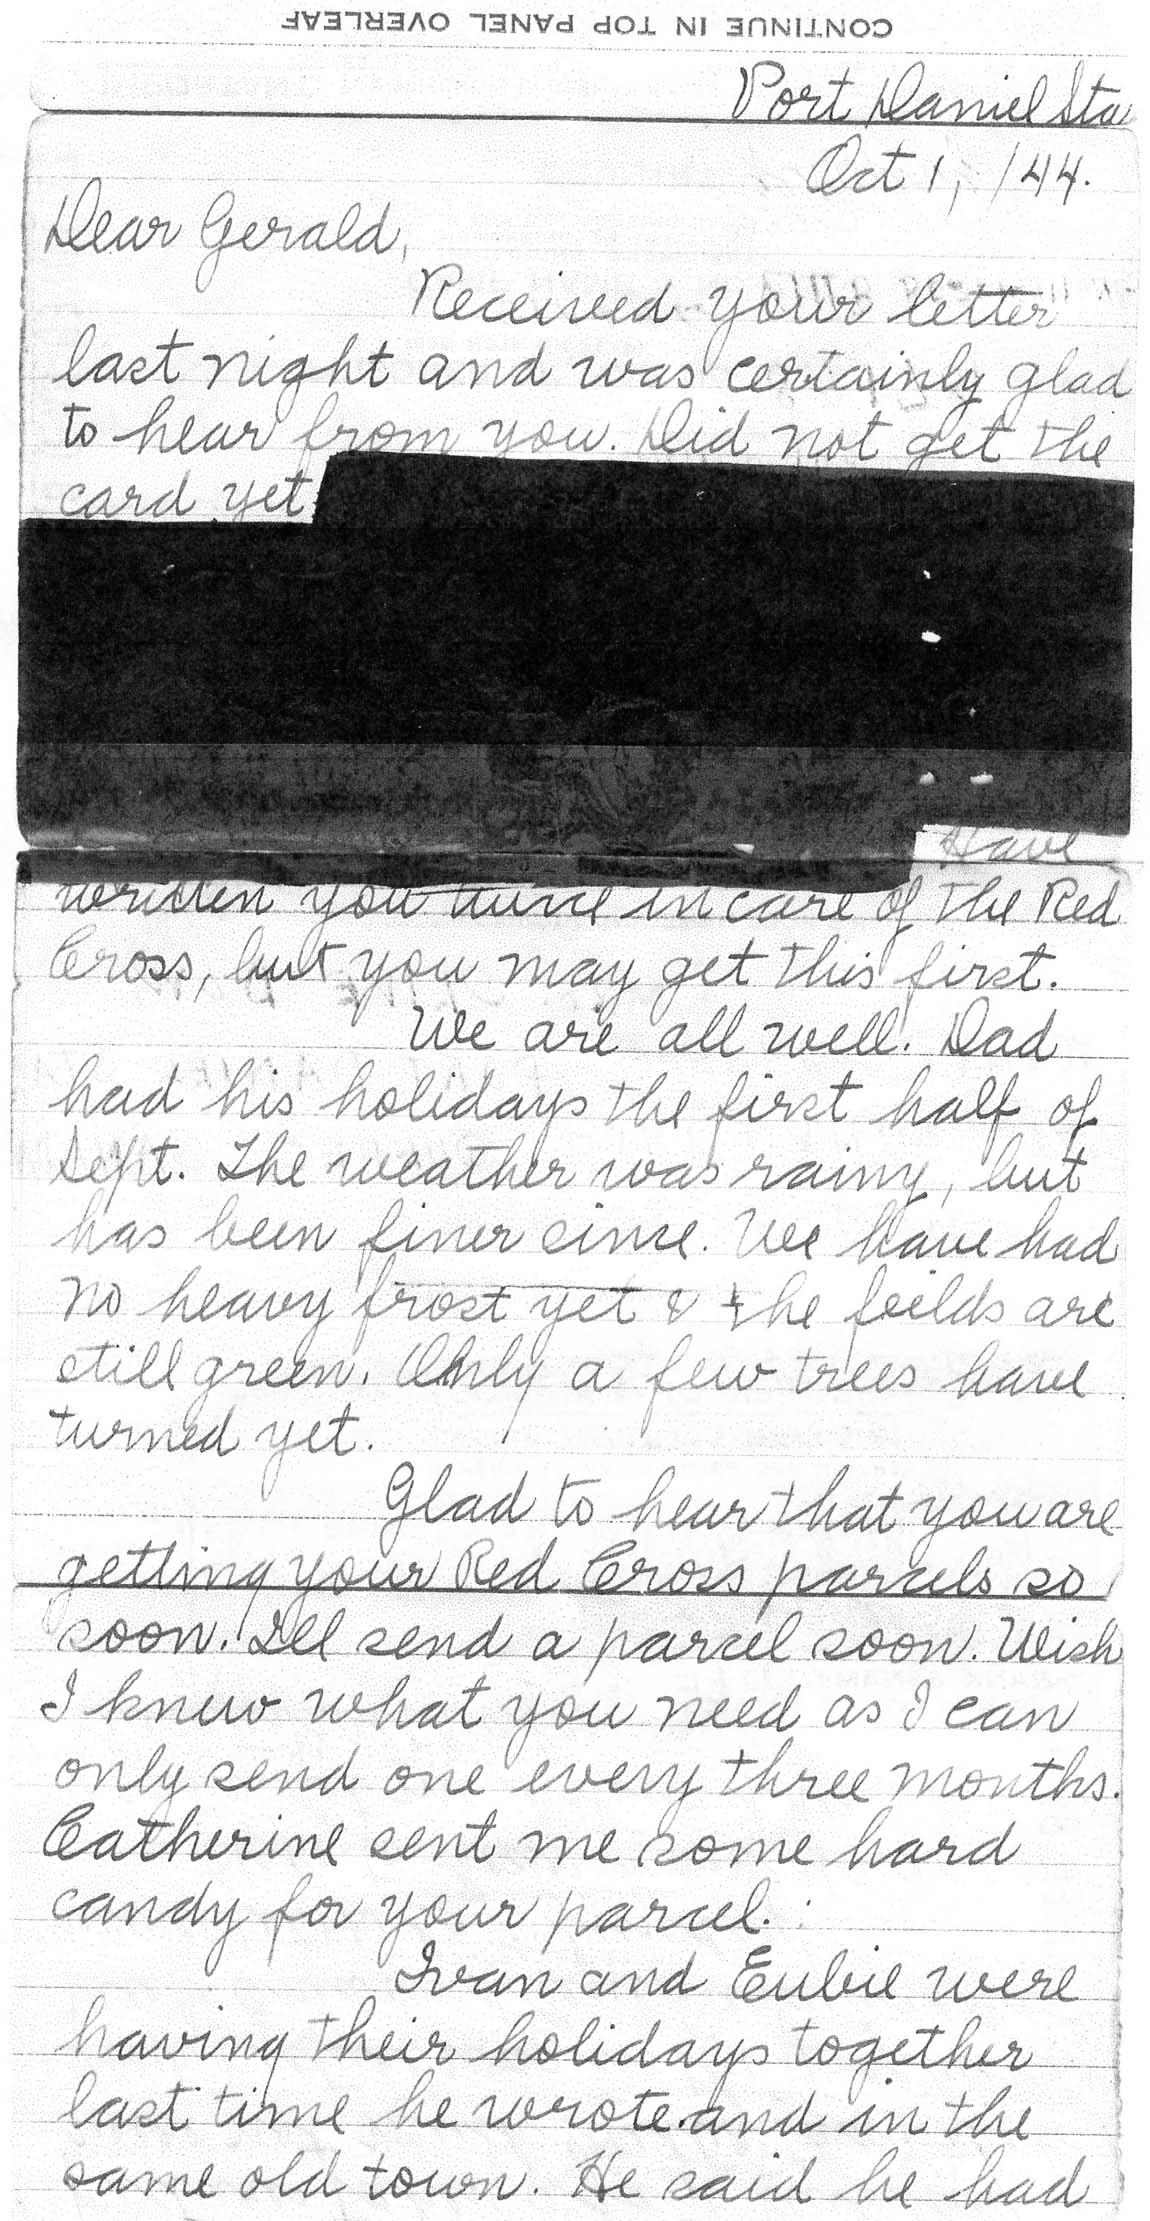 CONTINUE IN TOP PANEL OVERLEAF
Port Daniel Sta
Oct 1, /44.
Dear Gerald,
Received your letter
last night and was certainly glad
to hear from you. Did not get the
card yet
Have
written you twice in care of the Red
Cross, but you may get this first.
We are all well. Dad
had his holidays the first half of
Sept. The weather was rainy, but
has been finer since. We have had
no heavy frost yet & the feilds are
still green. Only a few trees have
turned yet.
Glad to hear that you are
getting your Red Cross parcels so
soon. I'll send a parcel soon. Wish
I knew what you need as I can
only send one every three months.
Catherine sent me some hard
candy for your parcel.
Ivan and Eubie were
having their holidays together
last time he wrote and in the
same old town. He said he had